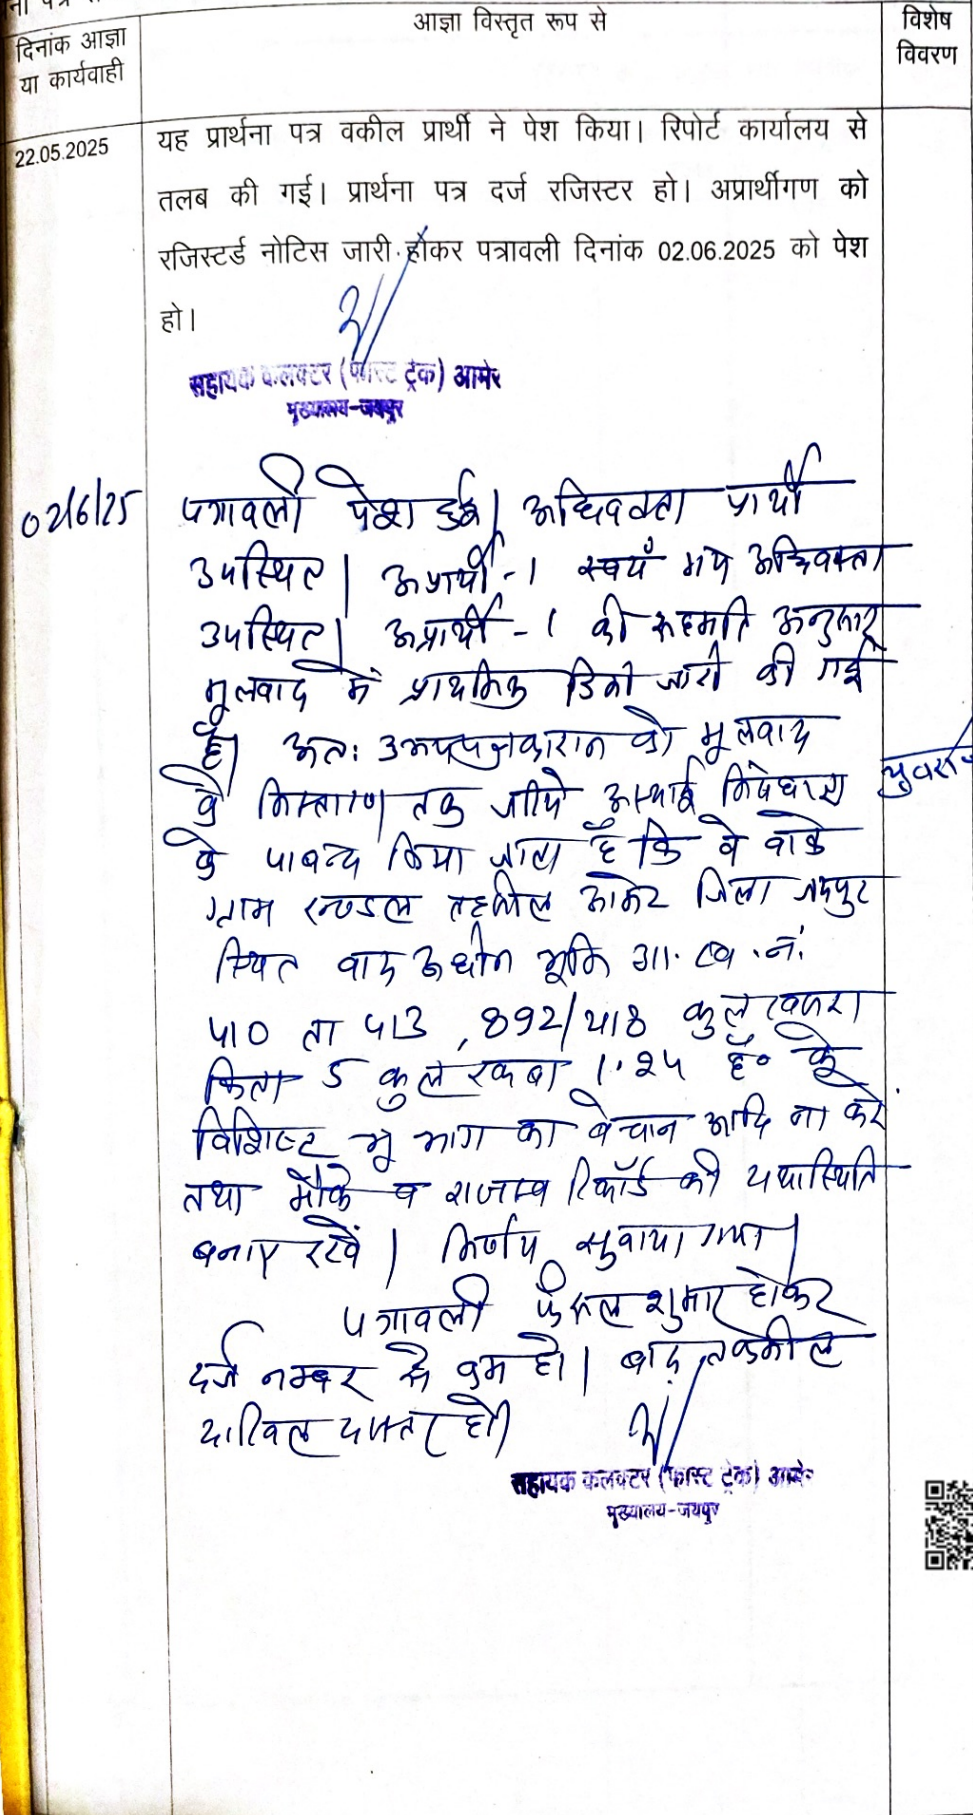 दिनांक आज्ञा
या कार्यवाही
आज्ञा विस्तृत रूप से
विशेष
विवरण
22.05.2025
यह प्रार्थना पत्र वकील प्रार्थी ने पेश किया। रिपोर्ट कार्यालय से
तलब की गई। प्रार्थना पत्र दर्ज रजिस्टर हो। अप्रार्थीगण को
रजिस्टर्ड नोटिस जारी होकर पत्रावली दिनांक 02.06.2025 को पेश
हो।
सहायक कलक्टर (फास्ट ट्रेक) आमेर
मुख्यालय-जयपुर
02/6/25
पत्रावली पेश हुई। अधिवक्ता प्रार्थी
उपस्थित। अप्रार्थी-1 स्वयं मय अधिवक्ता
उपस्थित। अप्रार्थी-1 की सहमति अनुसार
मूलवाद में प्राथमिक डिक्री जारी की गई
है। अतः उभयपक्षकारान को मूलवाद
के निस्तारण तक जरिये अस्थाई निषेधाज्ञा
के पाबन्द किया जाता है कि वे वाके
ग्राम तहसील आमेर जिला जयपुर
स्थित वाद अधीन भूमि आ. ख. नं.
410 ता 413, 892/418 कुल खसरा
किता 5 कुल रकबा 1.24 है० के
विशिष्ट भू भाग का बेचान आदि ना करें
तथा मौके व राजस्व रिकॉर्ड की यथास्थिति
बनाए रखें। निर्णय सुनाया गया।
पत्रावली फैसल शुमार होकर
दर्ज नम्बर से कम हो। बाद तकमील
दाखिल दफ्तर हो।
सहायक कलक्टर (फास्ट ट्रेक) आमेर
मुख्यालय-जयपुर